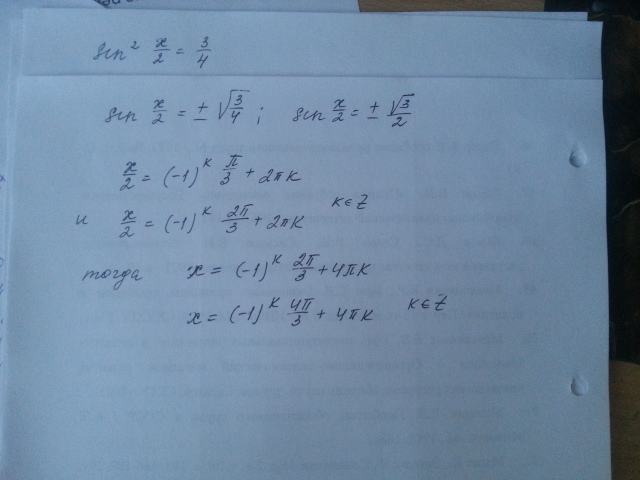 sin² x/2 = 3/4
sin x/2 = ± √(3/4) ; sin x/2 = ± √3/2
x/2 = (-1)^k π/3 + 2πk
и x/2 = (-1)^k 2π/3 + 2πk k∈Z
тогда x = (-1)^k 2π/3 + 4πk
x = (-1)^k 4π/3 + 4πk k∈Z